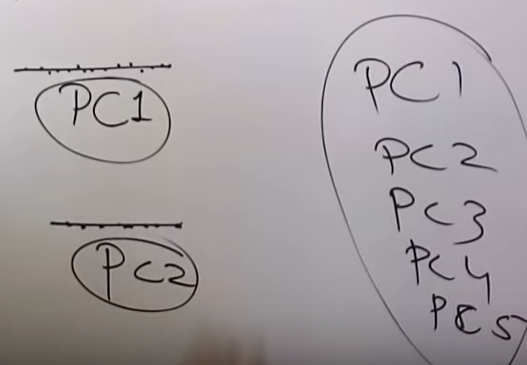 PC1
PC2
PC1
PC2
PC3
PC4
PC5